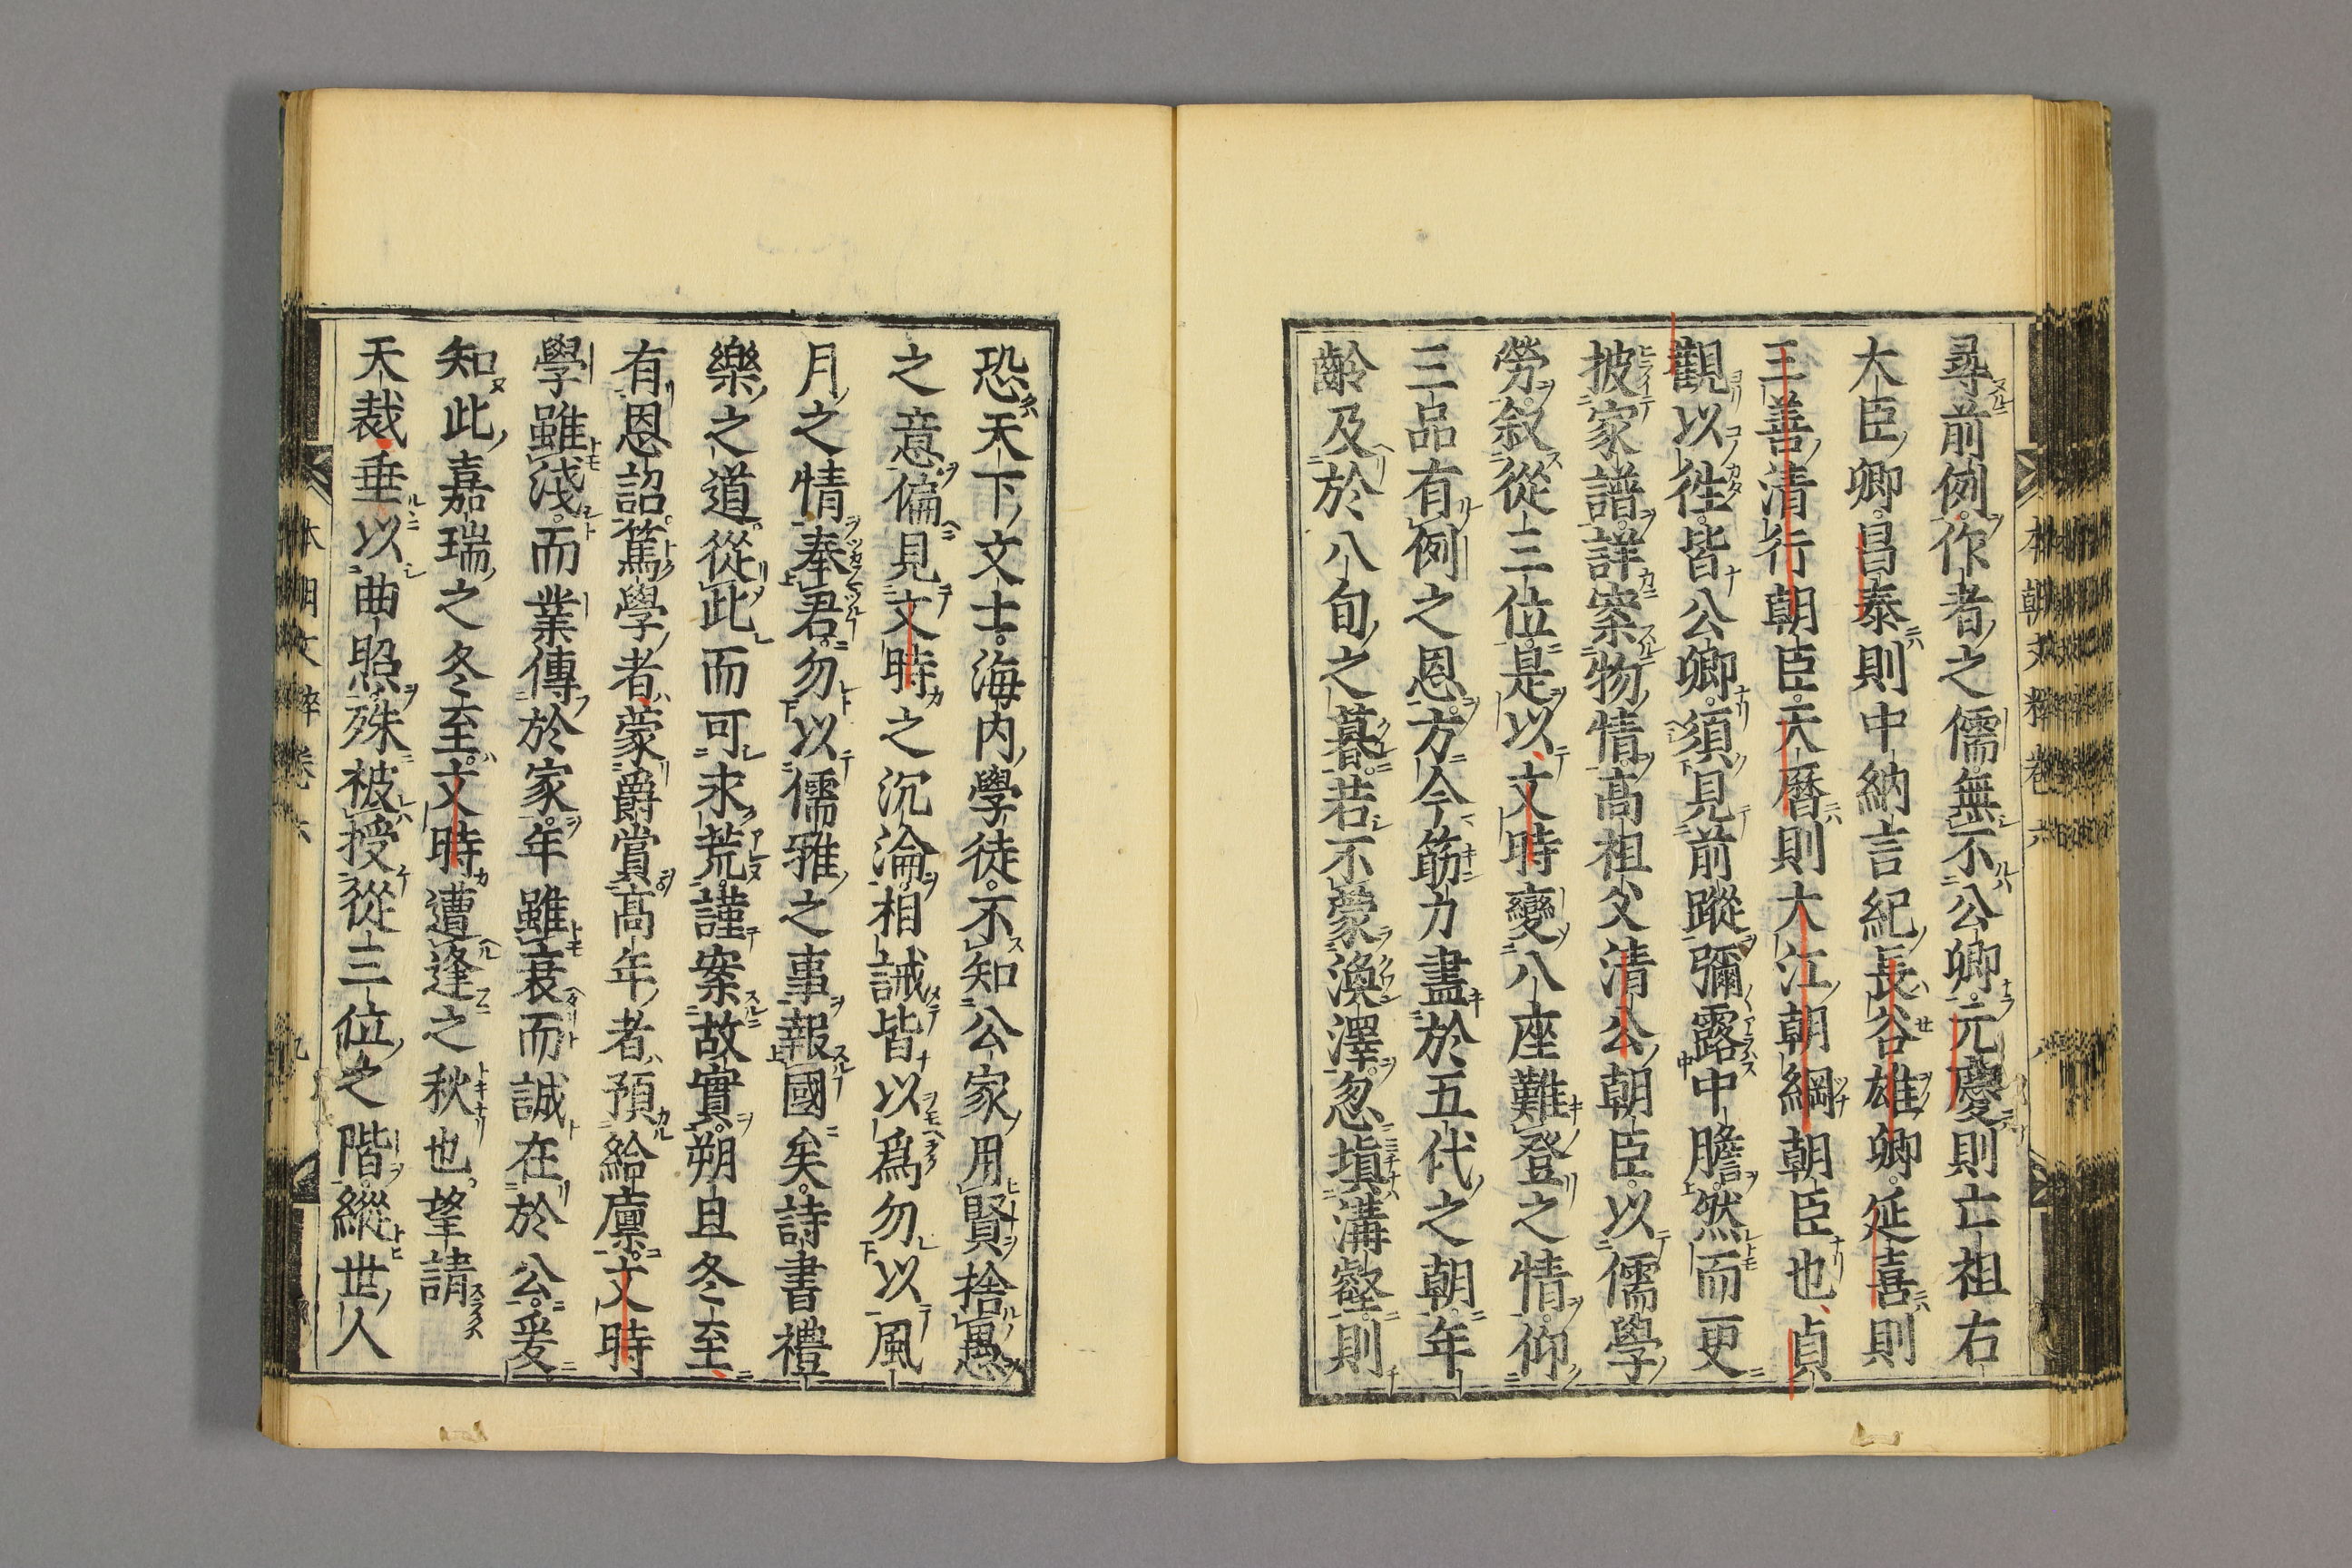 尋前例作者之儒無不公卿元慶則亡祖右
大臣卿昌泰則中納言紀長谷雄卿延喜則
三善清行朝臣天曆則大江朝綱朝臣也貞
觀以徃皆公卿須見前蹤彌露中膽然而更
披家譜詳案物情高祖父清公朝臣以儒學
勞叙從三位是以文時變八座難登之情仰
三品有例之恩方今筋力盡於五代之朝年
齡及於八旬之暮若不蒙渙澤忽塡溝壑則
恐天下文士海内學徒不知公家用賢捨愚
之意偏見文時之沉淪相誡皆以爲勿以風
月之情奉君勿以儒雅之事報國矣詩書禮
樂之道從此而可求荒謹案故實朔旦冬至
有恩詔篤學者蒙爵賞高年者預給廩文時
學雖淺而業傳於家年雖衰而誠在於公爰
知此嘉瑞之冬至文時遭逢之秋也望請
天裁垂以曲照殊被授從三位之階縱世人
本朝文粹卷六